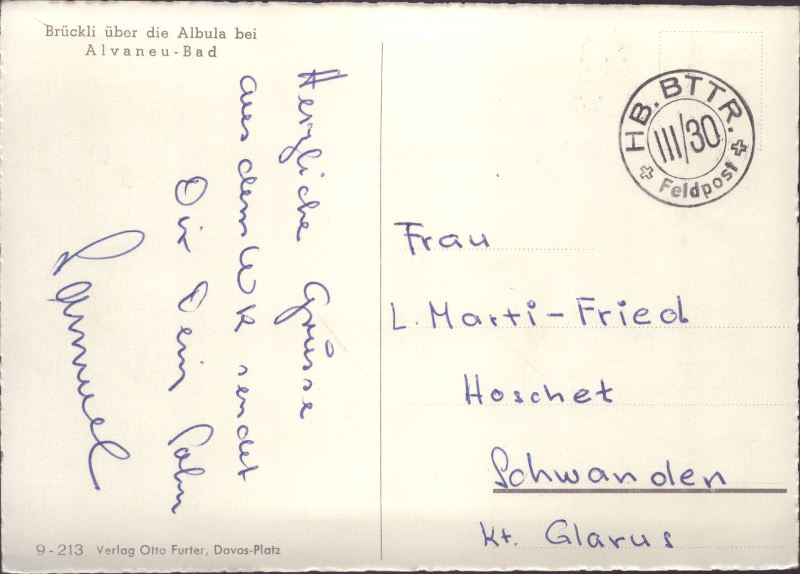 Brückli über die Albula bei
Alvaneu-Bad
Herzliche Grüsse
aus dem WK sendet
Dir Dein Sohn
Samuel
9-213 Verlag Otto Furter, Davos-Platz
HB. BTTR.
III/30
Feldpost
Frau
L. Marti-Fried
Hoschet
Schwanden
Kt. Glarus